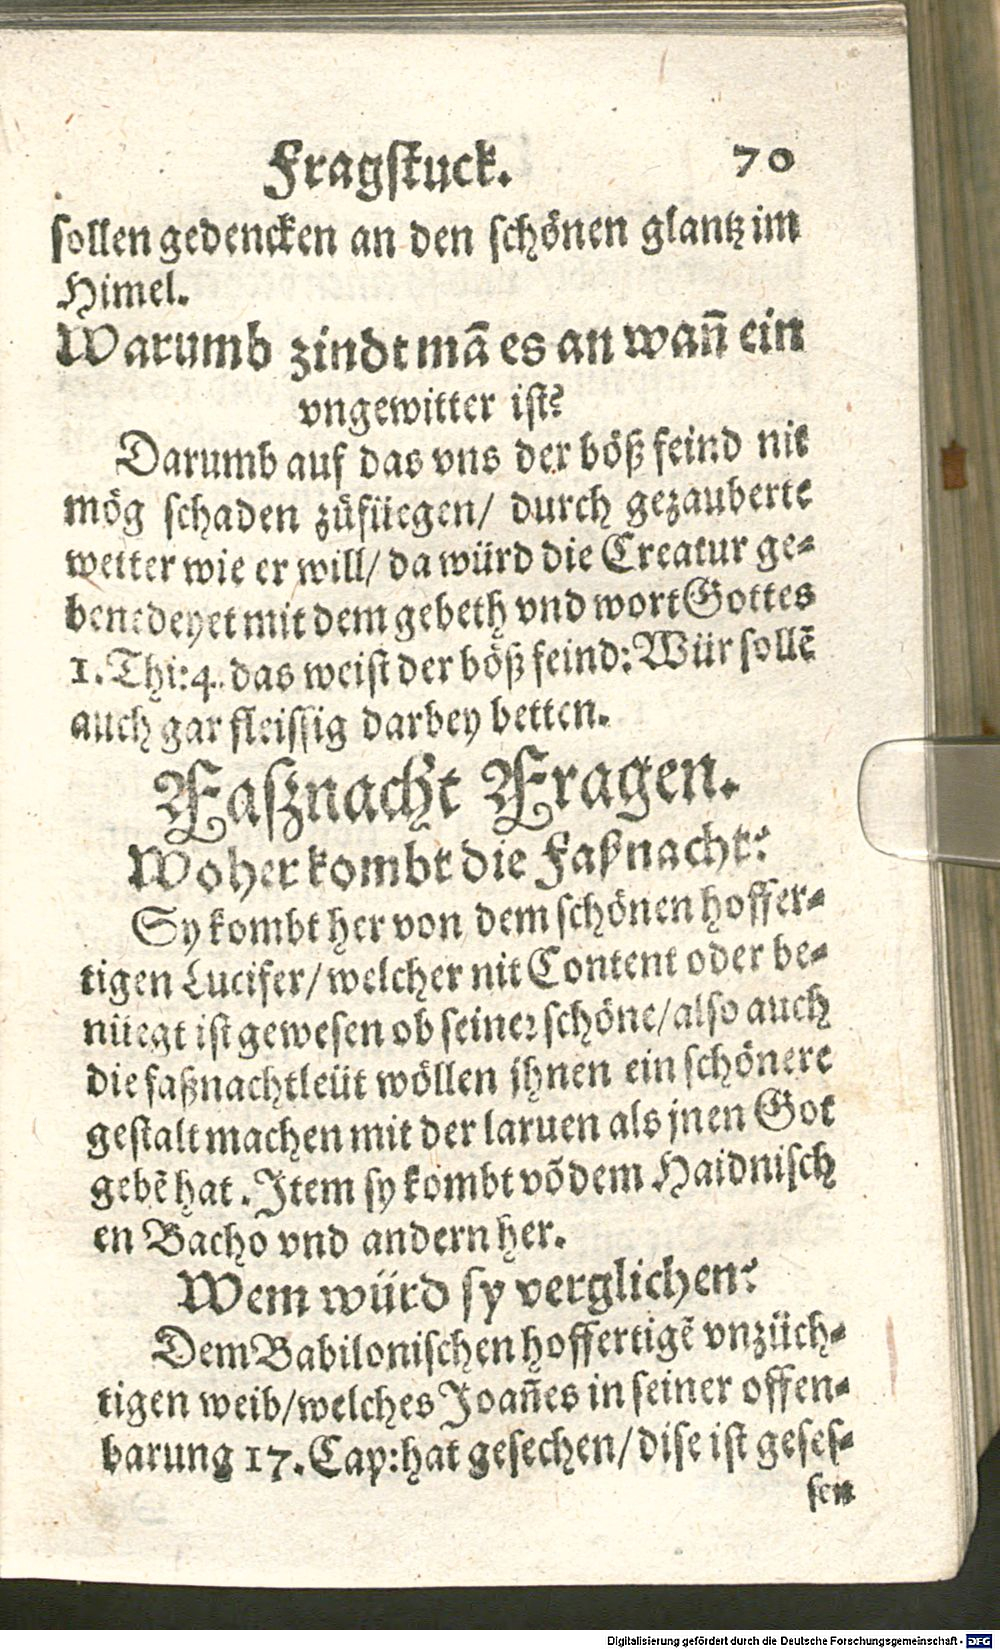 Fragstuck. 70
sollen gedencken an den schönen glantz im
Himel.
Warumb zindt mā es an wañ ein
vngewitter ist?
Darumb auf das vns der böß feind nit
mög schaden zůfüegen/ durch gezauberte
wetter wie er will/ da würd die Creatur ge-
benedeyet mit dem gebeth vnd wort Gottes
1. Thi: 4. das weist der böß feind: Wür sollē
auch gar fleissig darbey betten.
Fasznacht Fragen.
Woher kombt die Faßnacht?
Sy kombt her von dem schönen hoffer-
tigen Lucifer/ welcher nit Content oder be-
nüegt ist gewesen ob seiner schöne/ also auch
die faßnachtleüt wöllen jhnen ein schönere
gestalt machen mit der laruen als jnen Got
gebē hat. Item sy kombt võ dem Haidnisch
en Bacho vnd andern her.
Wem würd sy verglichen?
Dem Babilonischen hoffertigē vnzüch-
tigen weib/ welches Joañes in seiner offen-
barung 17. Cap: hat gesechen/ dise ist geses-
sen
Digitalisierung gefördert durch die Deutsche Forschungsgemeinschaft - DFG